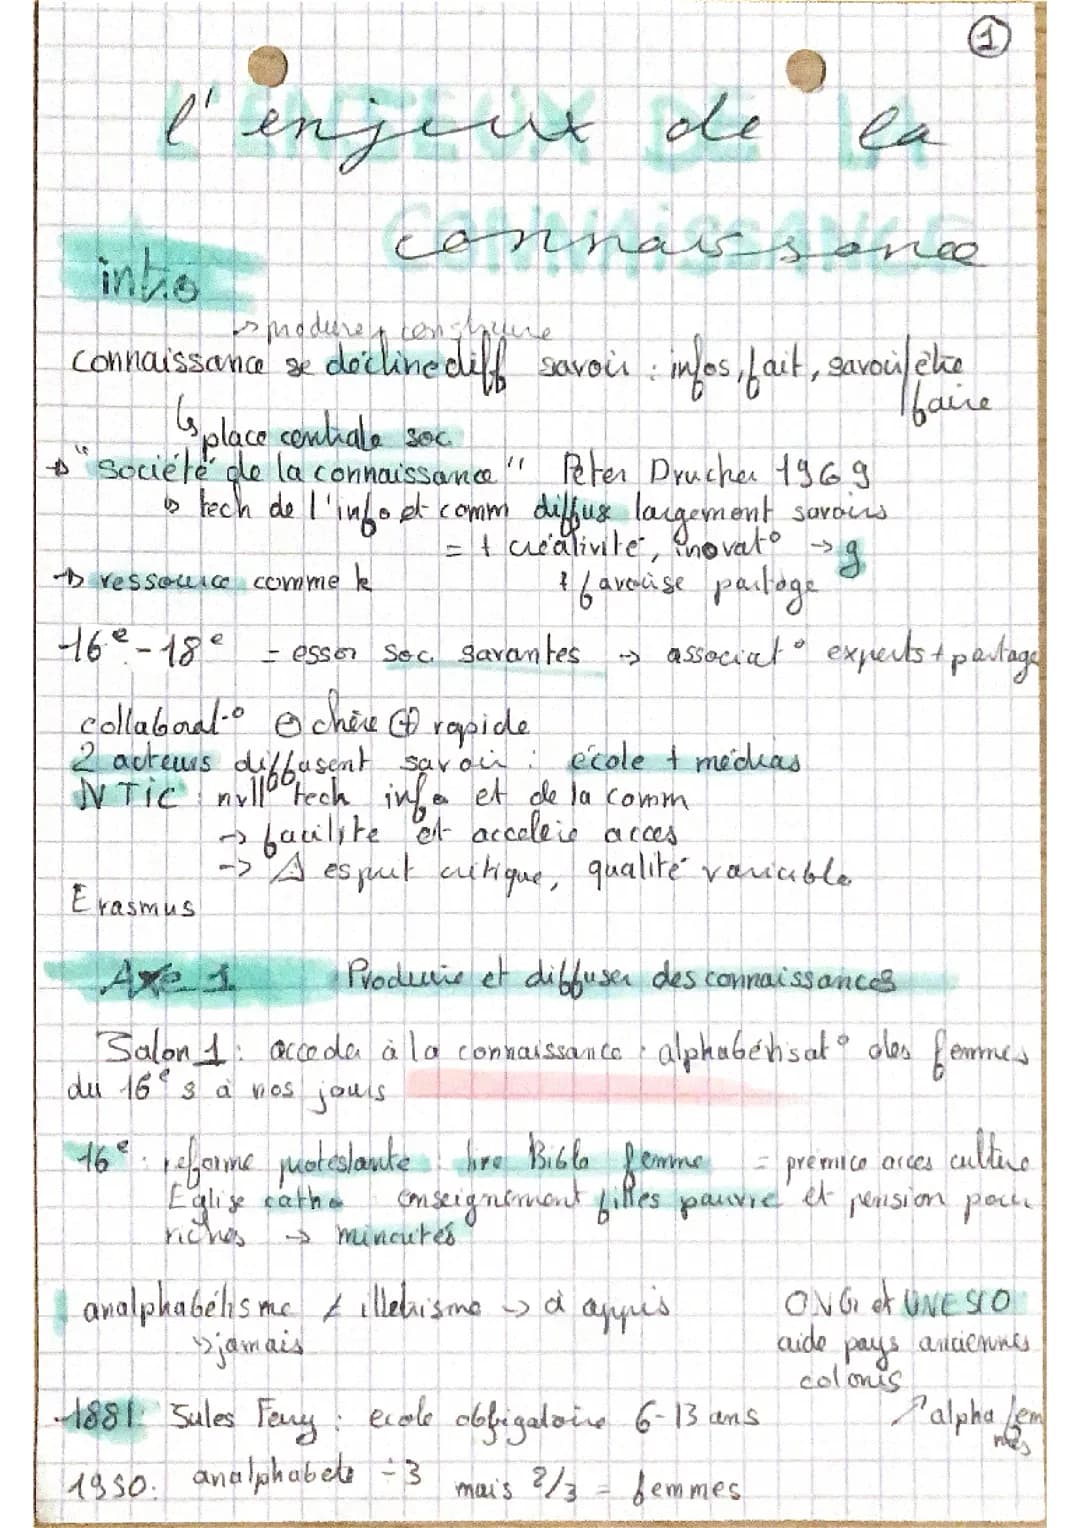 1
l'enjeux de la
connaissance
intro
↳ produire, construire
connaissance se décline diff savoir : infos, fait, savoir/être
/faire
↳ place centrale soc
→ "société de la connaissance" Peter Drucher 1969
↳ tech de l'info et comm diffuse largement savoirs
= + créativité, inovat° → g
→ ressource comme k + favorise partage
16e - 18e = essor soc. savantes → associat° experts + partage
collaborat° ⊖ chère ⊕ rapide
2 acteurs diffusent savoir : école + médias
NTIC : nvll tech info et de la comm
→ facilite et accélère accès
→ ⚠ esprit critique, qualité variable
Erasmus
Axe 1 Produire et diffuser des connaissances
Jalon 1 : acceder à la connaissance : alphabétisat° des femmes
du 16e s à nos jours
16e : reforme protestante : lire Bible femme = premice acces culture
Église catho enseignement filles pauvre et pension pour
riches → minorités
analphabétisme ≠ illetrisme → a appris
↳ jamais
ONG et UNESCO
aide pays anciennes
colonies
↗ alpha femmes
1881 : Jules Ferry : ecole obligatoire 6-13 ans
1950 : analphabete ÷3 mais 2/3 = femmes